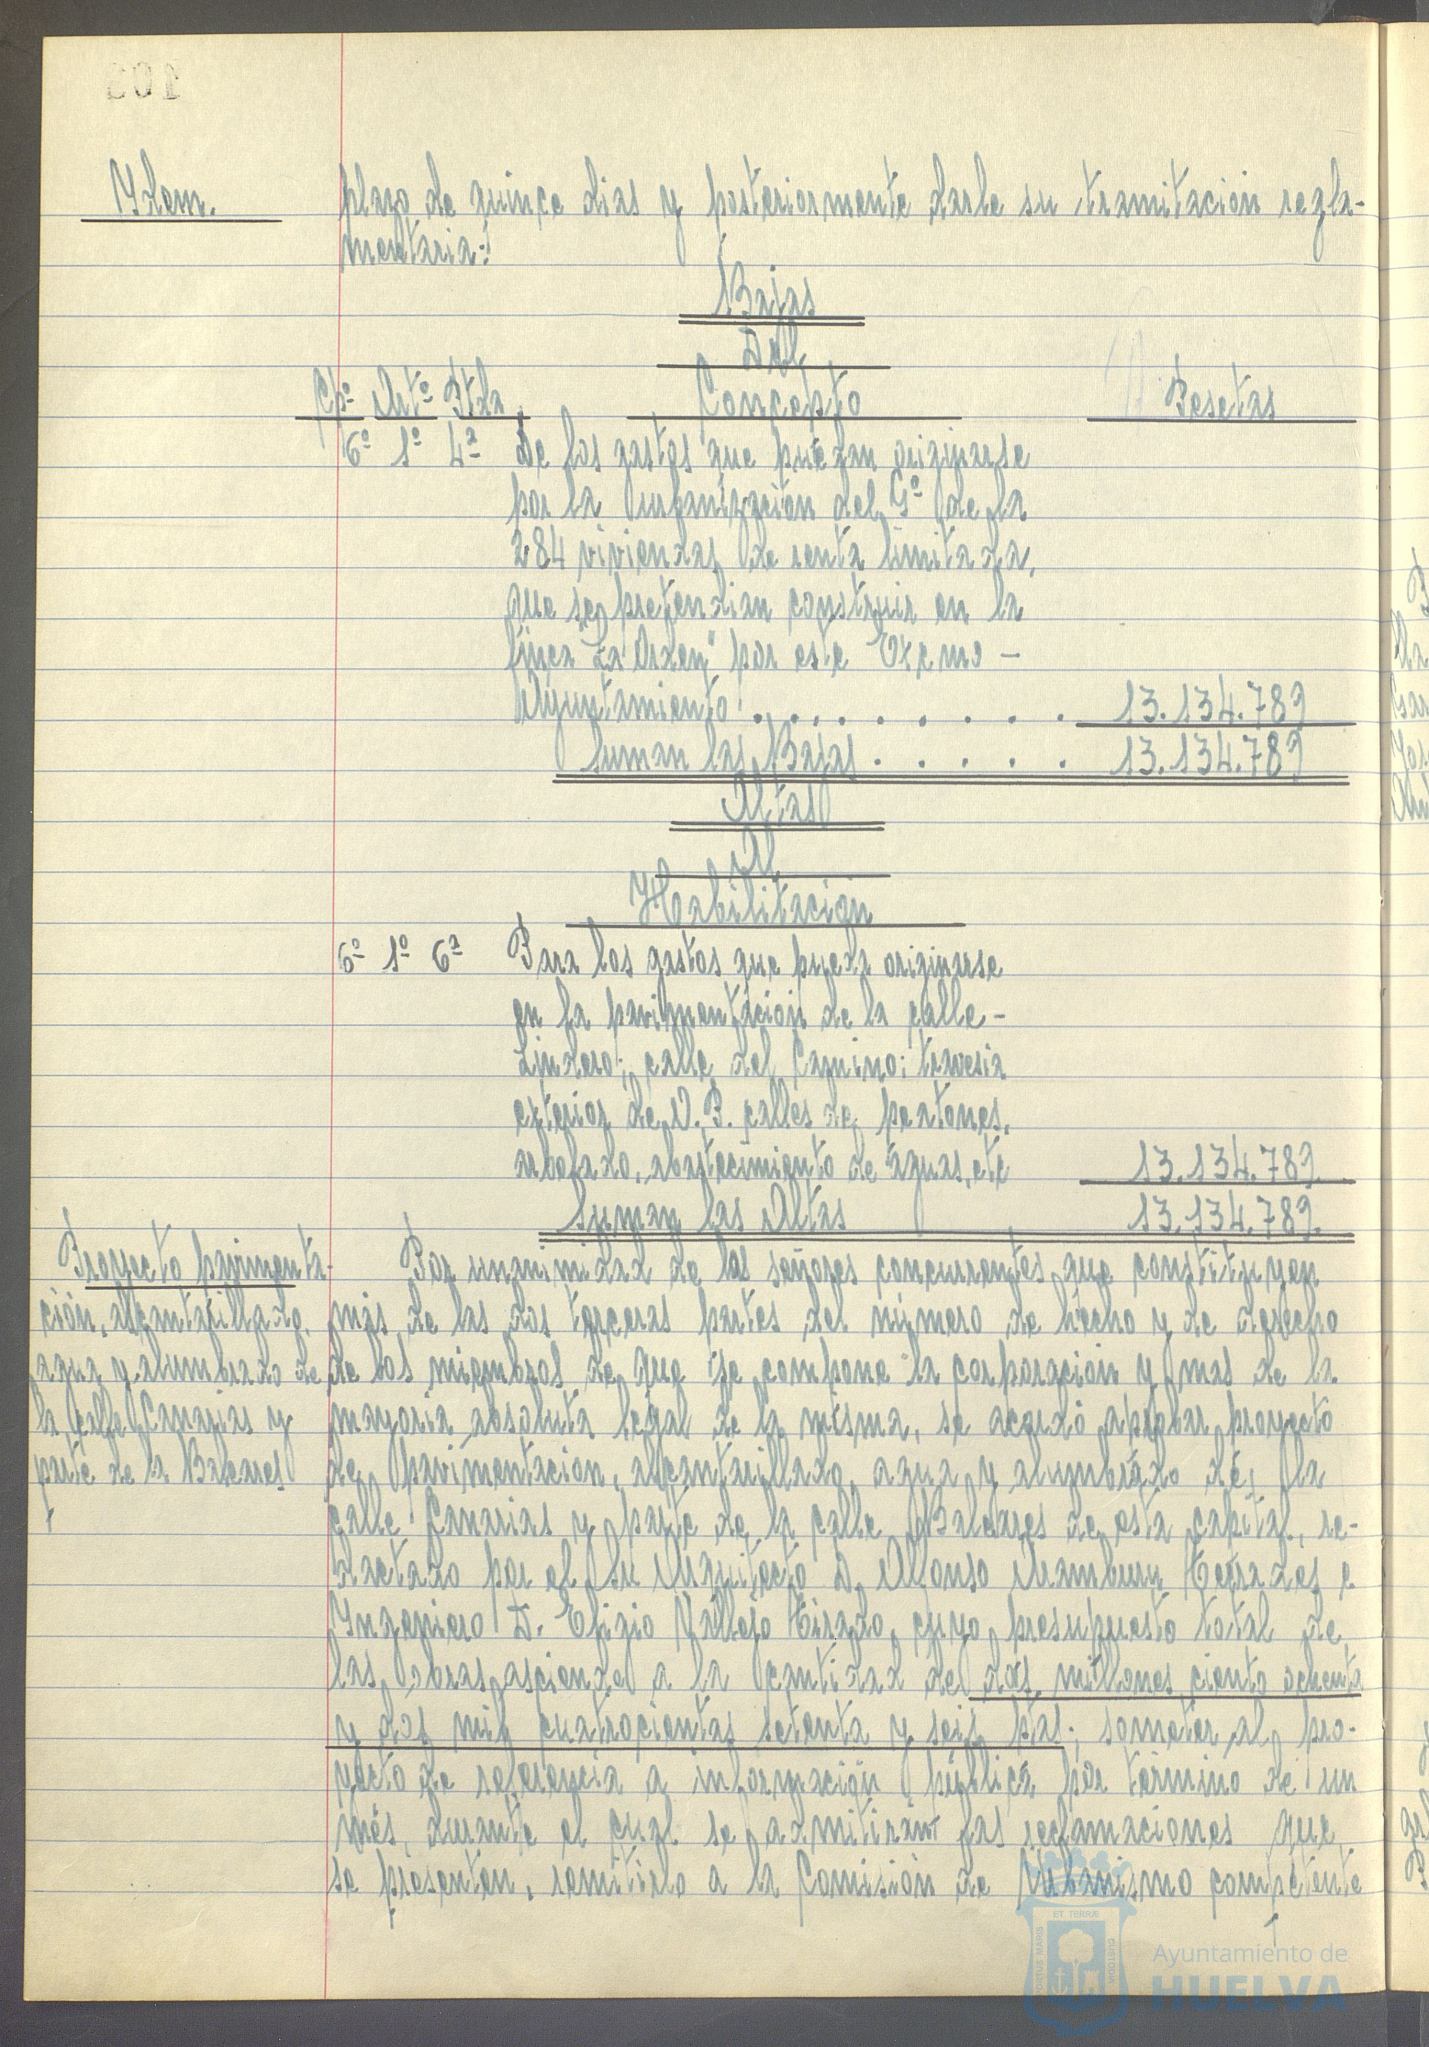 103
Ydem.
plazo de quince dias y posteriormente darle su tramitación regla-
mentaria:
Bajas
Del
Cpº Artº Ptda Concepto Pesetas
6º 1º 4ª De los gastos que puedan originarse
por la urbanización del Gº de la
284 viviendas de renta limitada,
que se pretendian construir en la
finca "La Orden" por este Excmo -
Ayuntamiento . . . . . . . . 13.134.789
Suman las Bajas . . . . . 13.134.789
Altas
Al
Habilitación
6º 1º 6ª Para los gastos que pueda originarse
en la pavimentación de la calle -
Lindero; calle del Camino; travesia
exterior de V.P. calles de peatones,
arbolado, abastecimiento de aguas, etc 13.134.789
Suman las Altas 13.134.789.
Proyecto pavimenta-
ción, alcantarillado,
agua y alumbrado de
la calle Canarias y
parte de la Baleares
Por unanimidad de los señores concurrentes que constituyen
más de las dos terceras partes del número de hecho y de derecho
de los miembros de que se compone la corporación y mas de la
mayoria absoluta legal de la misma, se acordó aprobar proyecto
de pavimentación, alcantarillado, agua y alumbrado de la
calle Canarias y parte de la calle Baleares de esta capital, re-
dactado por el Sr. Arquitecto D. Alfonso Aramburu Terrades e
Ingeniero D. Eligio Vallejo Tirado, cuyo presupuesto total de
las obras asciende a la cantidad de dos millones ciento ochenta
y dos mil cuatrocientas setenta y seis ptas; someter al pro-
yecto de referencia a información pública por término de un
més, durante el cual se admitirán las reclamaciones que
se presenten, remitirlo a la Comisión de Urbanismo competente
ET TERRÆ
PORTUS MARIS
CUSTODIA
Ayuntamiento de
HUELVA